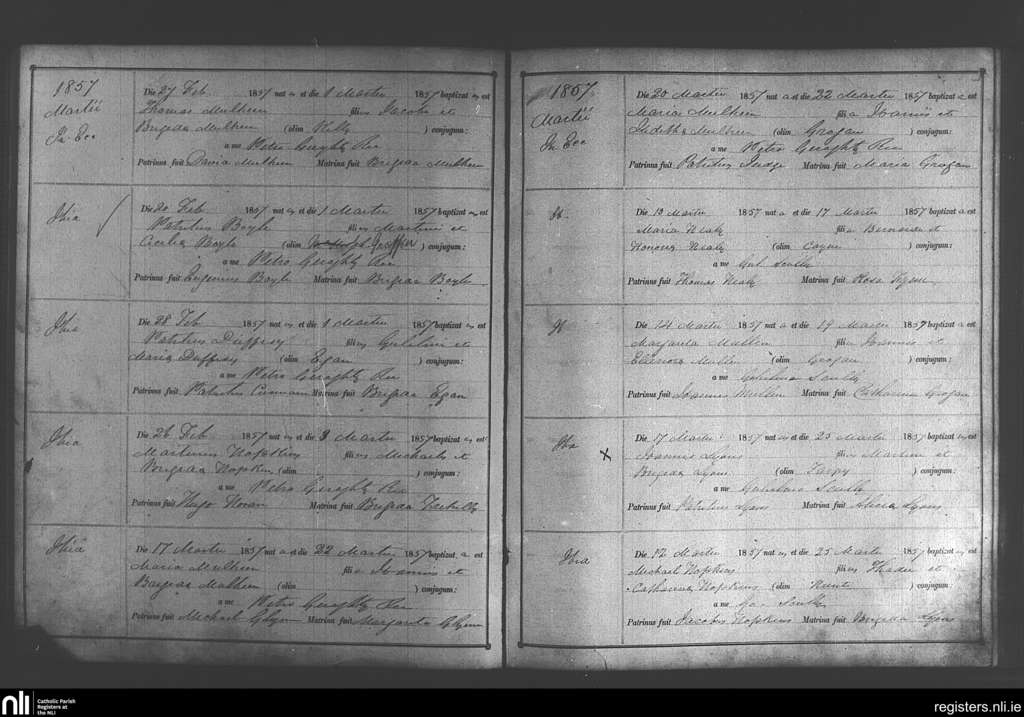 1857
Martii
In Ecc
Die 27 Feb 1857 nat us et die 1 Martii 1857 baptizat us est
Thomas Mulhern filius Jacobi et
Brigida Mulhern (olim Kelly ) conjugum:
a me Petro Geraghty
Patrinus fuit David Mulhern Matrina fuit Brigida Mulhern
Ibid
Die 20 Feb 1857 nat us et die 1 Martii 1857 baptizat us est
Patritius Boyle filius Martini et
Cecilia Boyle (olim Griffin ) conjugum:
a me Petro Geraghty
Patrinus fuit Eugenius Boyle Matrina fuit Brigida Boyle
Ibid
Die 28 Feb 1857 nat us et die 1 Martii 1857 baptizat us est
Patritius Duffrey filius Gulielmi et
Maria Duffrey (olim Egan ) conjugum:
a me Petro Geraghty
Patrinus fuit Patritius Matrina fuit Brigida Egan
Ibid
Die 26 Feb 1857 nat us et die 3 Martii 1857 baptizat us est
Martinus Hopkins filius Michaelis et
Brigida Hopkins (olim ) conjugum:
a me Petro Geraghty
Patrinus fuit Hugo Horan Matrina fuit Brigida
Ibid
Die 17 Martii 1857 nat a et die 22 Martii 1857 baptizat a est
Maria Mulhern filia Joannis et
Brigida Mulhern (olim ) conjugum:
a me Petro Geraghty
Patrinus fuit Michael Glynn Matrina fuit Margarita Glynn
1857
Martii
In Ecc
Die 20 Martii 1857 nat a et die 22 Martii 1857 baptizat a est
Maria Mulhern filia Joannis et
Judith Mulhern (olim Grogan ) conjugum:
a me Petro Geraghty
Patrinus fuit Patritius Judge Matrina fuit Maria Grogan
Ib.
Die 12 Martii 1857 nat a et die 17 Martii 1857 baptizat a est
Maria Neale filia Bernardi et
Honora Neale (olim Coyne ) conjugum:
a me Gul Scully
Patrinus fuit Thomas Neale Matrina fuit Rosa
Ib
Die 14 Martii 1857 nat a et die 19 Martii 1857 baptizat a est
Margarita Mullen filia Joannis et
Eleanora Mullen (olim Grogan ) conjugum:
a me Gulielmo Scully
Patrinus fuit Joannes Mullen Matrina fuit Catharina Grogan
Ibd
X
Die 17 Martii 1857 nat us et die 23 Martii 1857 baptizat us est
Joannis Lyons filius Martini et
Brigida Lyons (olim Tarpy ) conjugum:
a me Gulielmo Scully
Patrinus fuit Patritius Lyons Matrina fuit Alicia Lyons
Ibid
Die 12 Martii 1857 nat us et die 25 Martii 1857 baptizat us est
Michael Hopkins filius Thadei et
Catharina Hopkins (olim Hunt ) conjugum:
a me Gul Scully
Patrinus fuit Jacobus Hopkins Matrina fuit Brigida Lyons
nli
Catholic Parish
Registers at
the NLI
registers.nli.ie